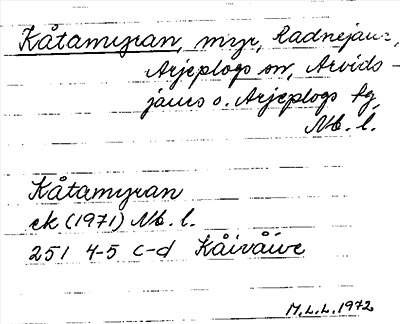 Kåtamyran, myr, Radnejaur,
Arjeplogs sn, Arvids-
jaurs o. Arjeplogs tg,
Nb. l.
Kåtamyran
ek (1971) Nb. l.
251 4-5 c-d Kåivåive
M.L.L. 1972